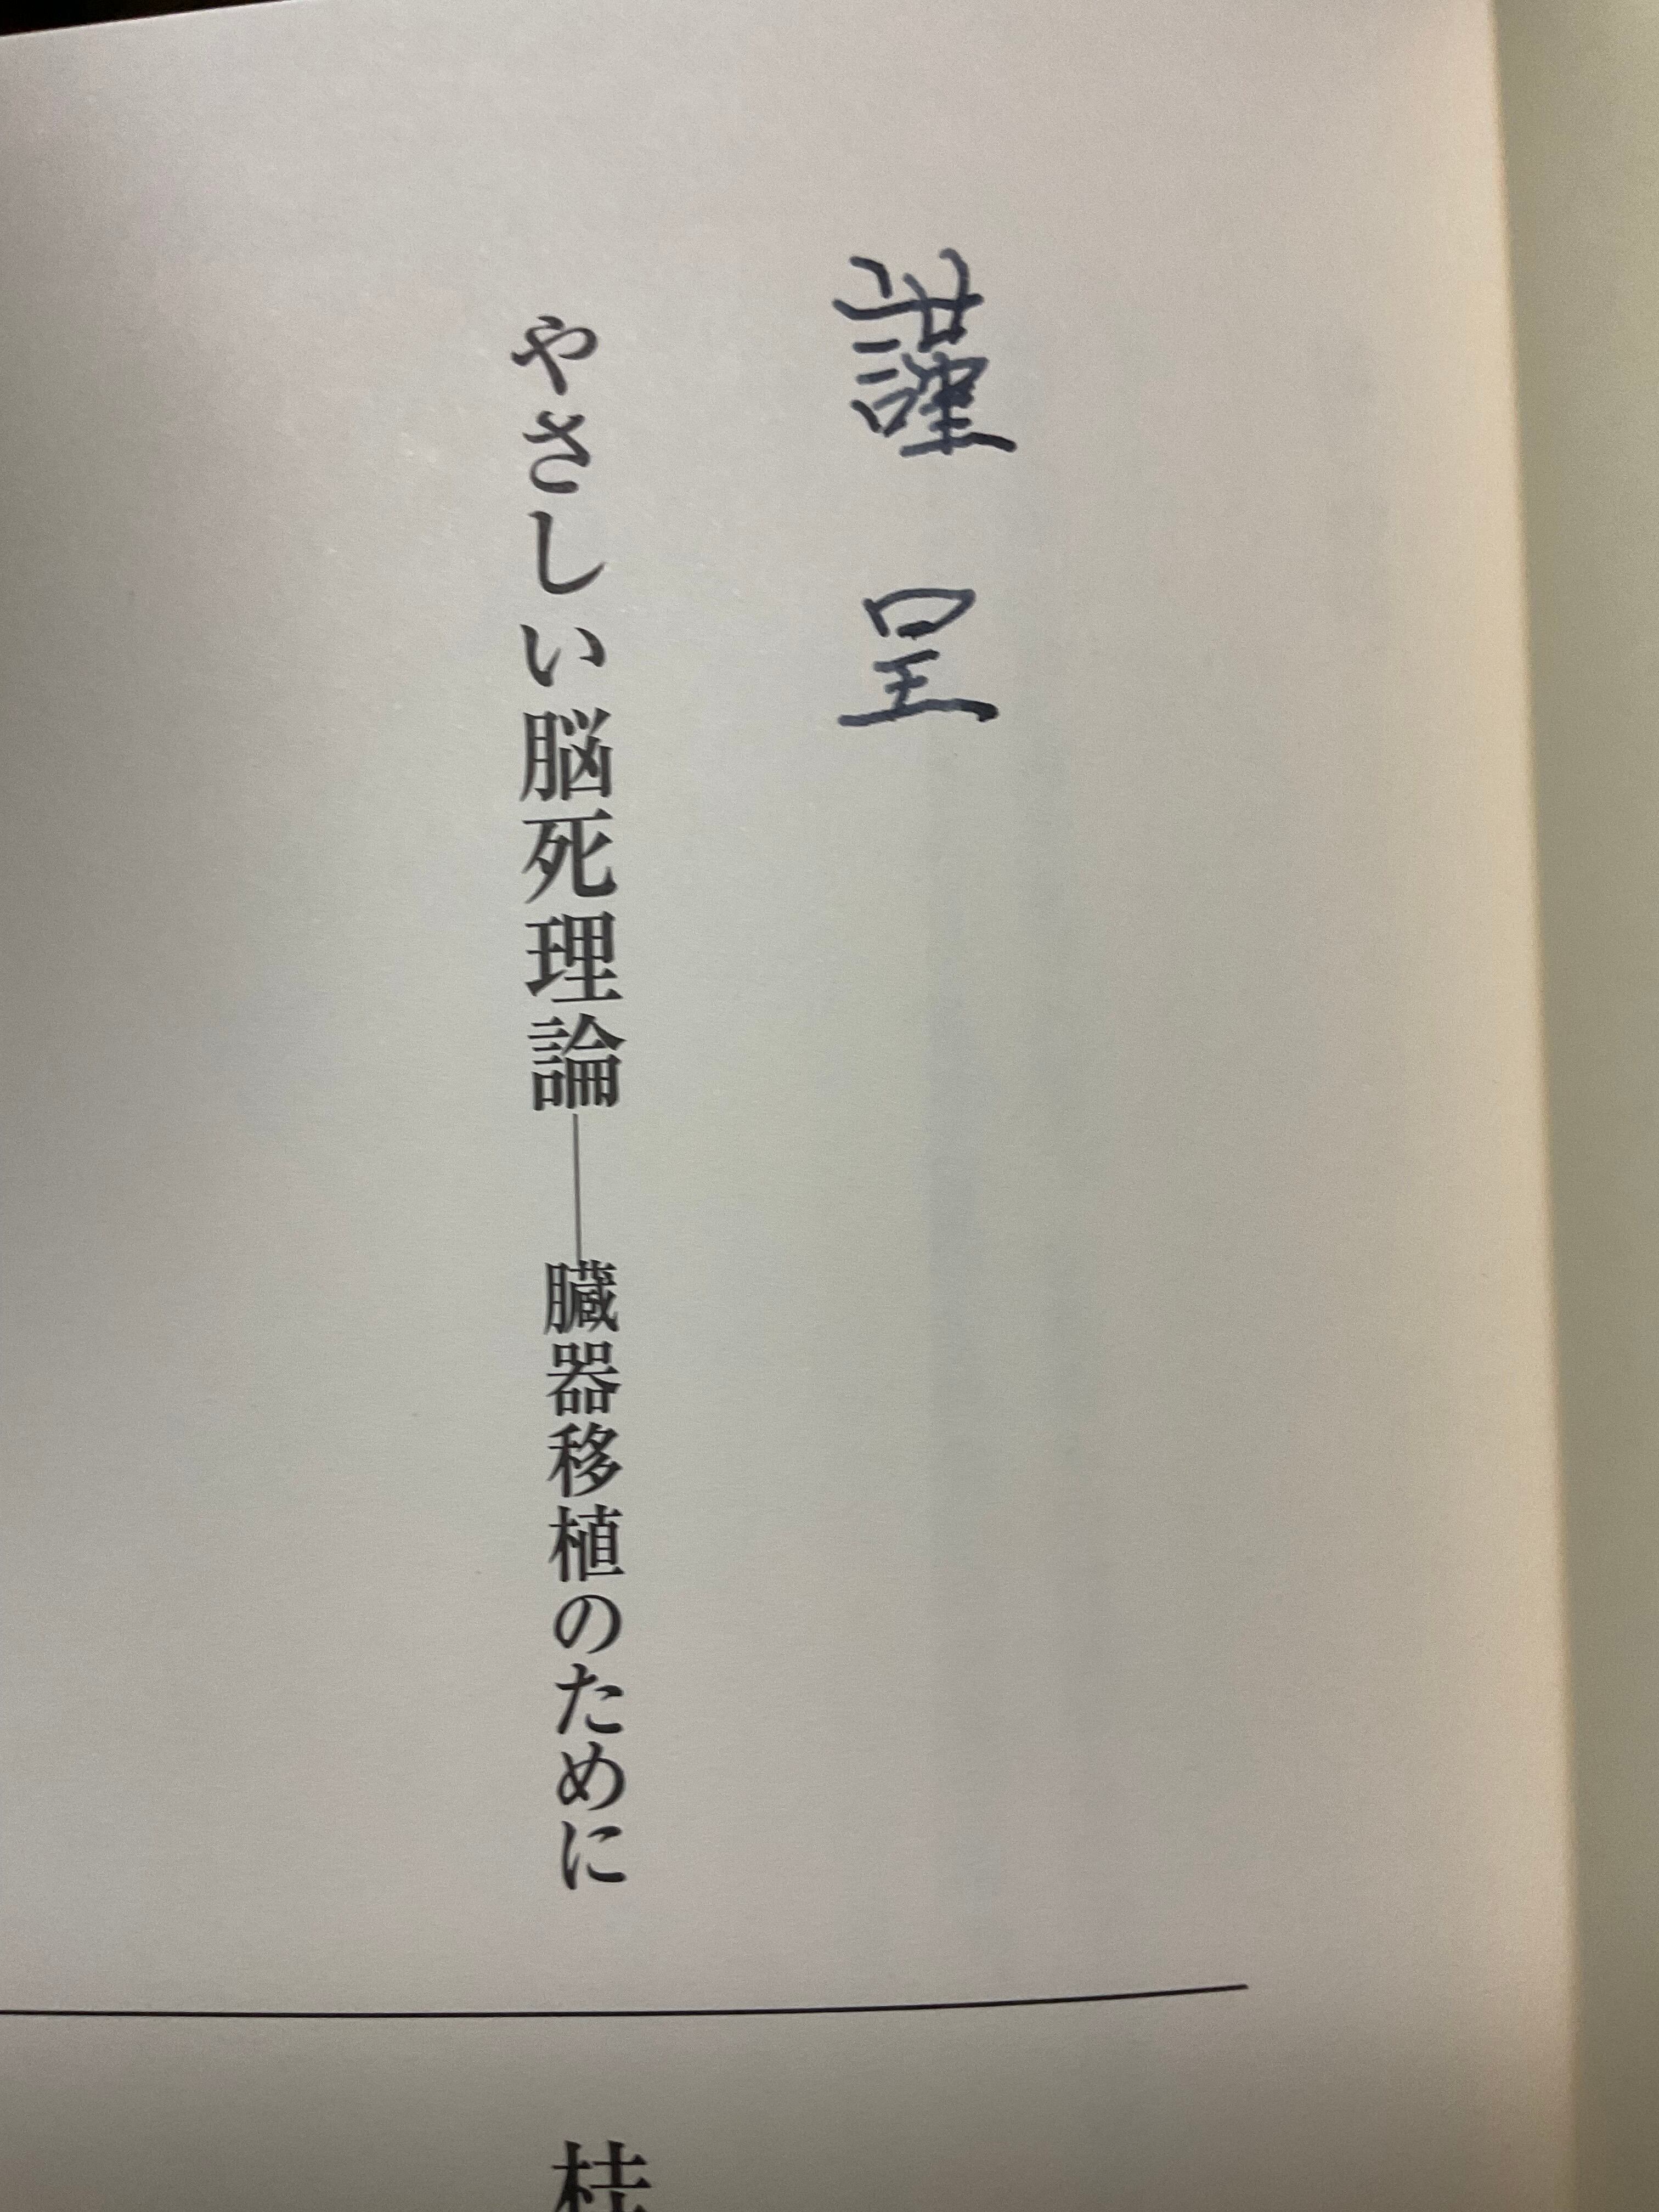 謹呈
やさしい脳死理論――臓器移植のために
桂